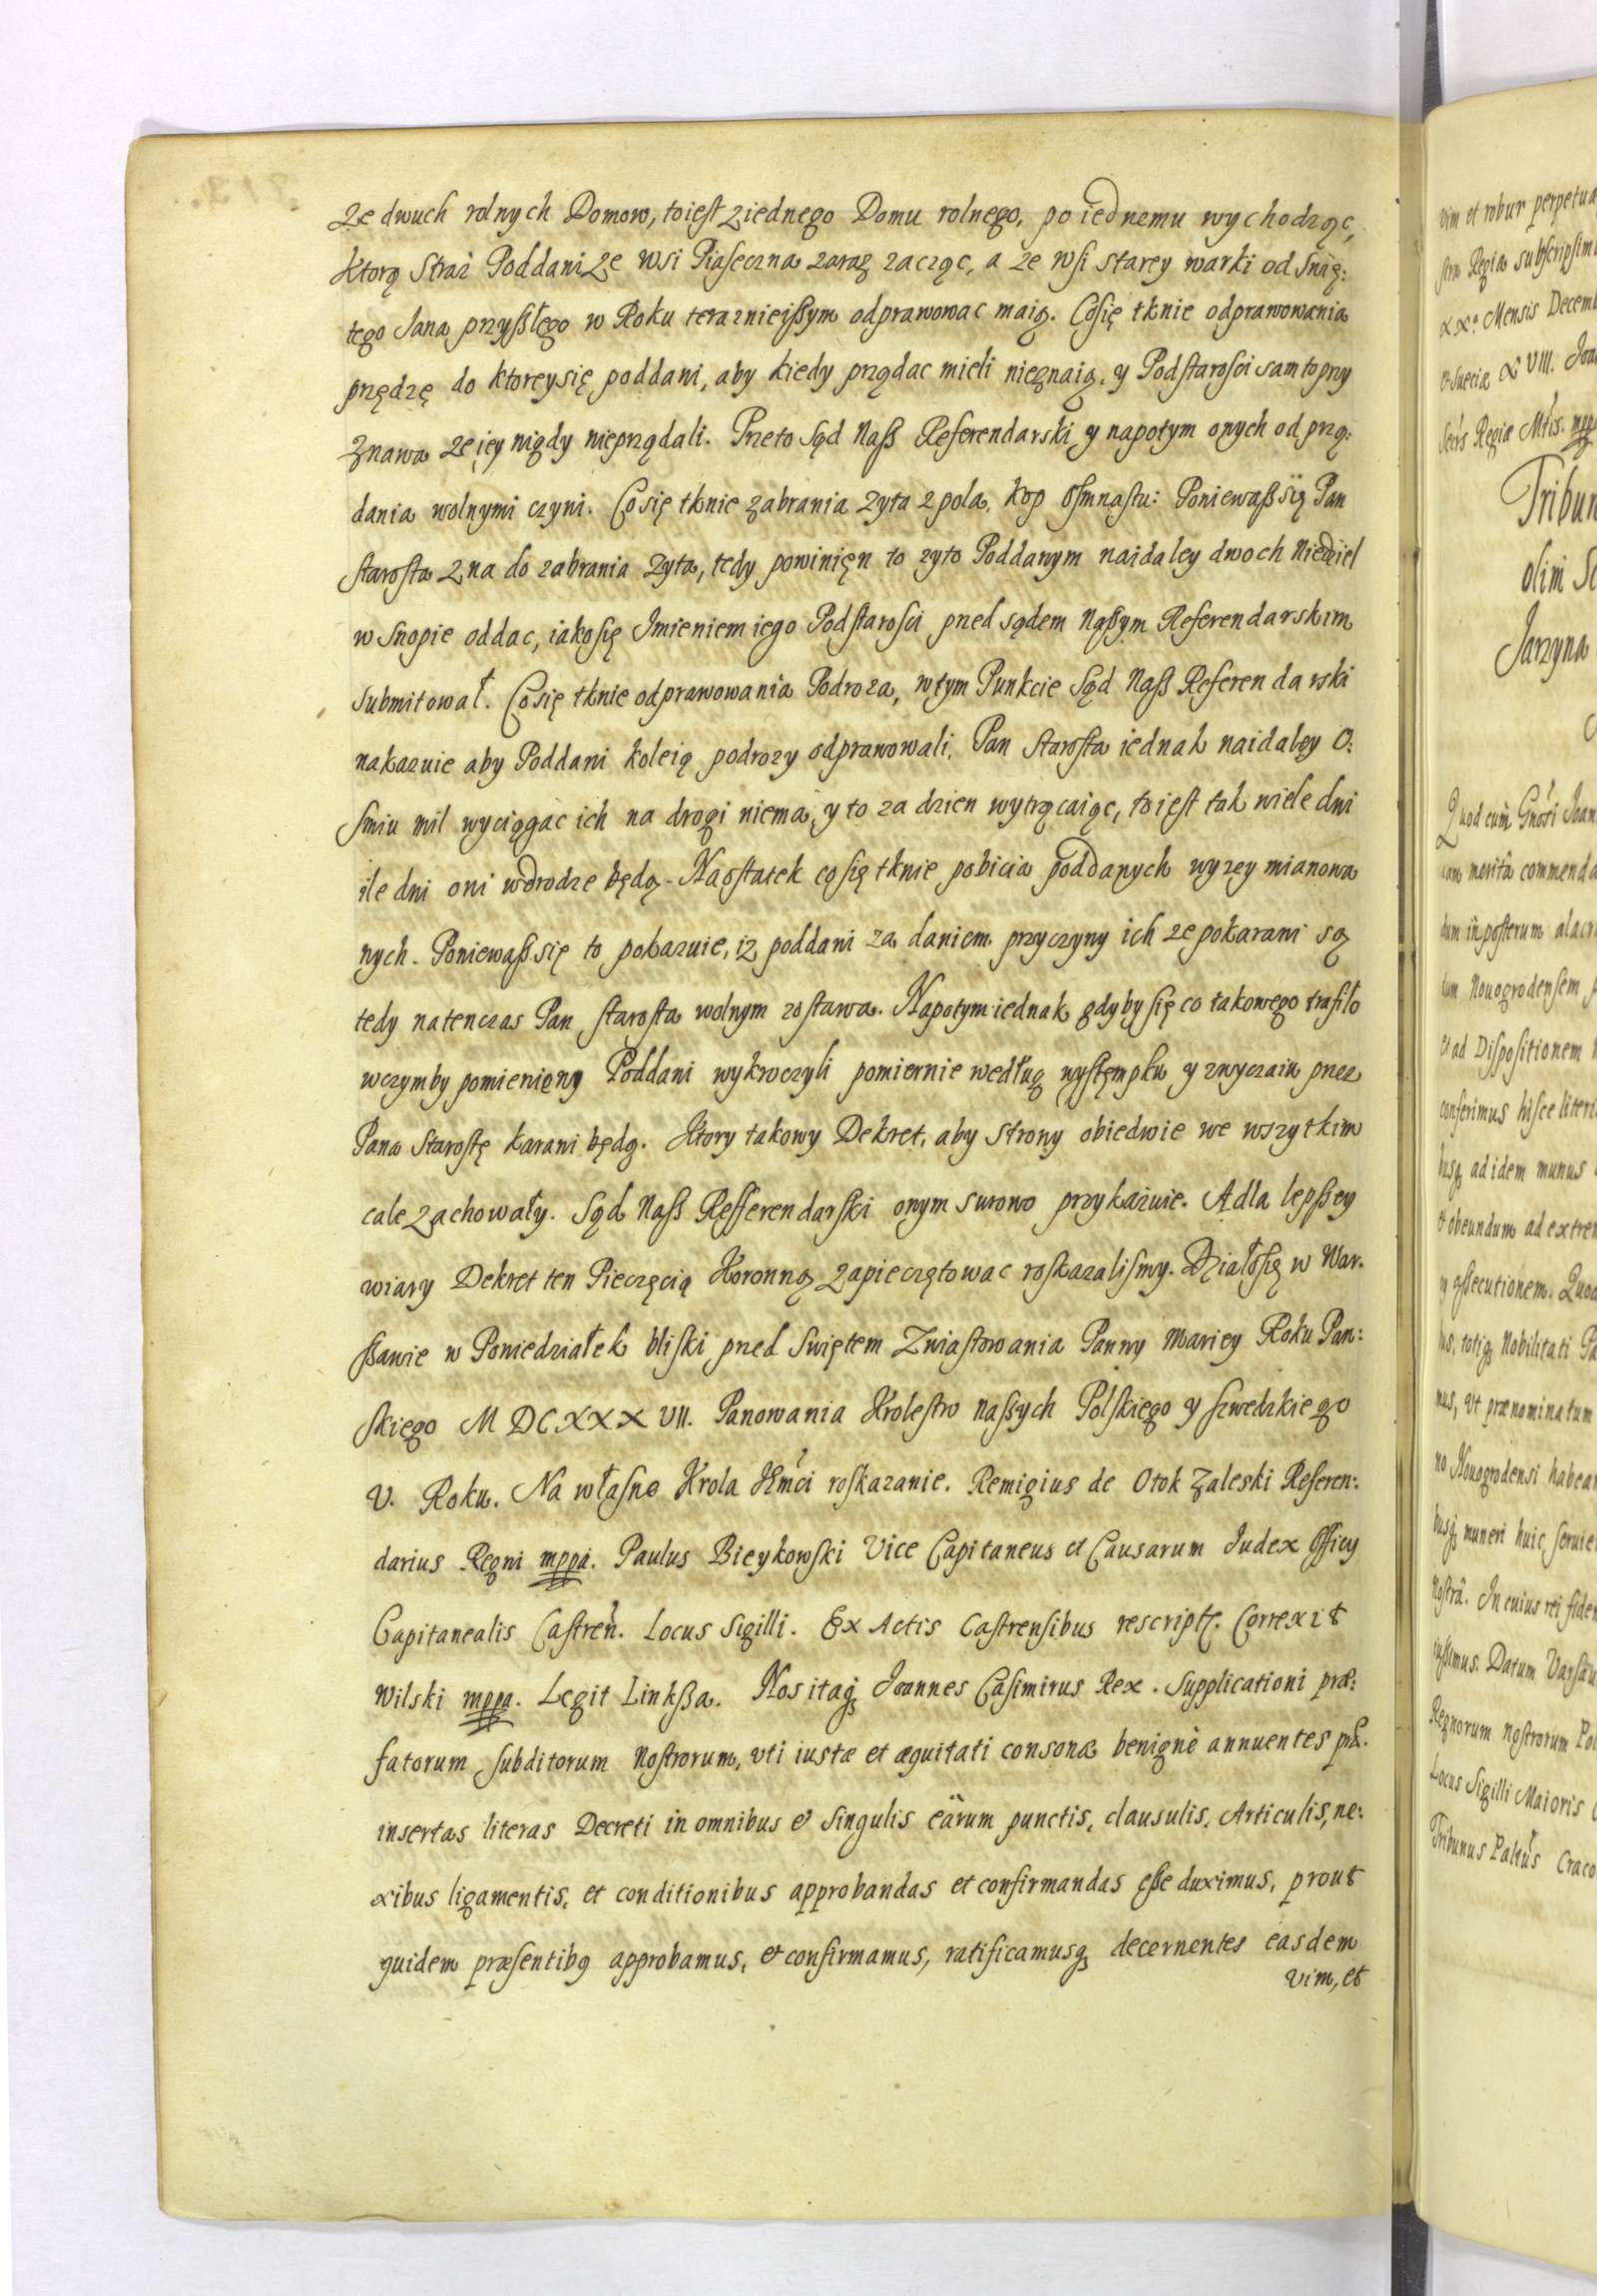 Ze dwuch rolnych Domow, toiest ziednego Domu rolnego, po iednemu wychodząc,
Ktorą Straż Poddani Ze Wsi Piaseczna zaraz zacząc, a ze wsi starey warki od Swię:
tego Jana przyszłego w Roku teraznieiszym odprawowac maią. Cosię tknie odprawowania
przędzę do ktoreysię poddani, aby kiedy prządac mieli nieznaią, y Podstarosci sam to przy
znawa ze iey nigdy nieprządali. Przeto Sąd Nasz Referendarski y napotym onych od przą:
dania wolnymi czyni. Cosię tknie zabrania Zyta z pola, kop osmnastu: Poniewasz się Pan
starosta zna do zabrania Zyta, tedy powinięn to zyto Poddanym naidaley dwoch Niedziel
w Snopie oddac, iakosię Imieniem iego Podstarosci pred sądem Naszym Referendarskim
submitował. Cosię tknie odprawowania Podroza, wtym Punkcie Sąd Nasz Referendarski
nakazuie aby Poddani koleią podrozy odprawowali, Pan Starosta iednak naidaley O:
smiu mil wyciągac ich na drogi niema, y to za dzien wytrącaiąc, to iest tak wiele dni
ile dni oni wdrodze będą. Naostatek cosię tknie pobicia poddanych wyzey mianowa
nych. Poniewasz się to pokazuie, iz poddani za daniem przyczyny ich ze pokarani są
tedy natenczas Pan starosta wolnym zostawa. Napotym iednak gdyby się co takowego trafiło
wczymby pomienięny Poddani wykroczyli pomiernie według występku y zwyczaiu przez
Pana Starostę karani będą. Ktory takowy Dekret, aby strony obiedwie we wszytkim
cale zachowały. Sąd Nasz Refferendarski onym surowo przykazuie. A dla lepszey
wiary Dekret ten Pieczęcią Koronną zapieczętowac roskazalismy. Działosię w War.
szawie w Poniedziałek bliski pred Swiętem Zwiastowania Panny Mariey Roku Pan:
skiego M DC XXX VII. Panowania Krolestw naszych Polskiego y szwedzkiego
V. Roku. Na własne Krola JEmci roskazanie. Remigius de Otok Zaleski Referen:
darius Regni mppa. Paulus Bieykowski Vice Capitaneus et Causarum Judex Officy
Capitanealis Castren. Locus Sigilli. Ex Actis Castrensibus rescript. Correxit
Wilski mppa. Legit Linksza. Nos itaq Joannes Casimirus Rex. Supplicationi præ:
fatorum subditorum Nostrorum, vti iustæ et æquitati consonæ benignè annuentes præ.
insertas literas Decreti in omnibus et singulis eârum punctis, clausulis, Articulis, ne:
xibus ligamentis, et conditionibus approbandas et confirmandas esse duximus, prout
quidem præsentibq approbamus, et confirmamus, ratificamusq decernentes easdem
vim, et
vim et robur perpetua
stra Regia subscripsim
XX. Mensis Decemb
et Sueciæ VIII. Joa
Secrs Regiæ Mtis. mpp
Tribun
olim
Jarzyna
Quod cum Gnosi Joan
merita commenda
dum in posterum alacr
tum Nouogrodensem
et ad Dispositionem
conferimus hisce literis
ad idem munus
et obeundum ad extrem
assecutionem. Quod
totiq Nobilitati Pa
mus, vt prænominatum
no Nouogrodensi habean
busq muneri huic seruie
Nostrâ. In cuius rei fidem
iussimus. Datum Varsau
Regnorum Nostrorum Pol
Locus Sigilli Maioris
Tribunus Palt​us Craco